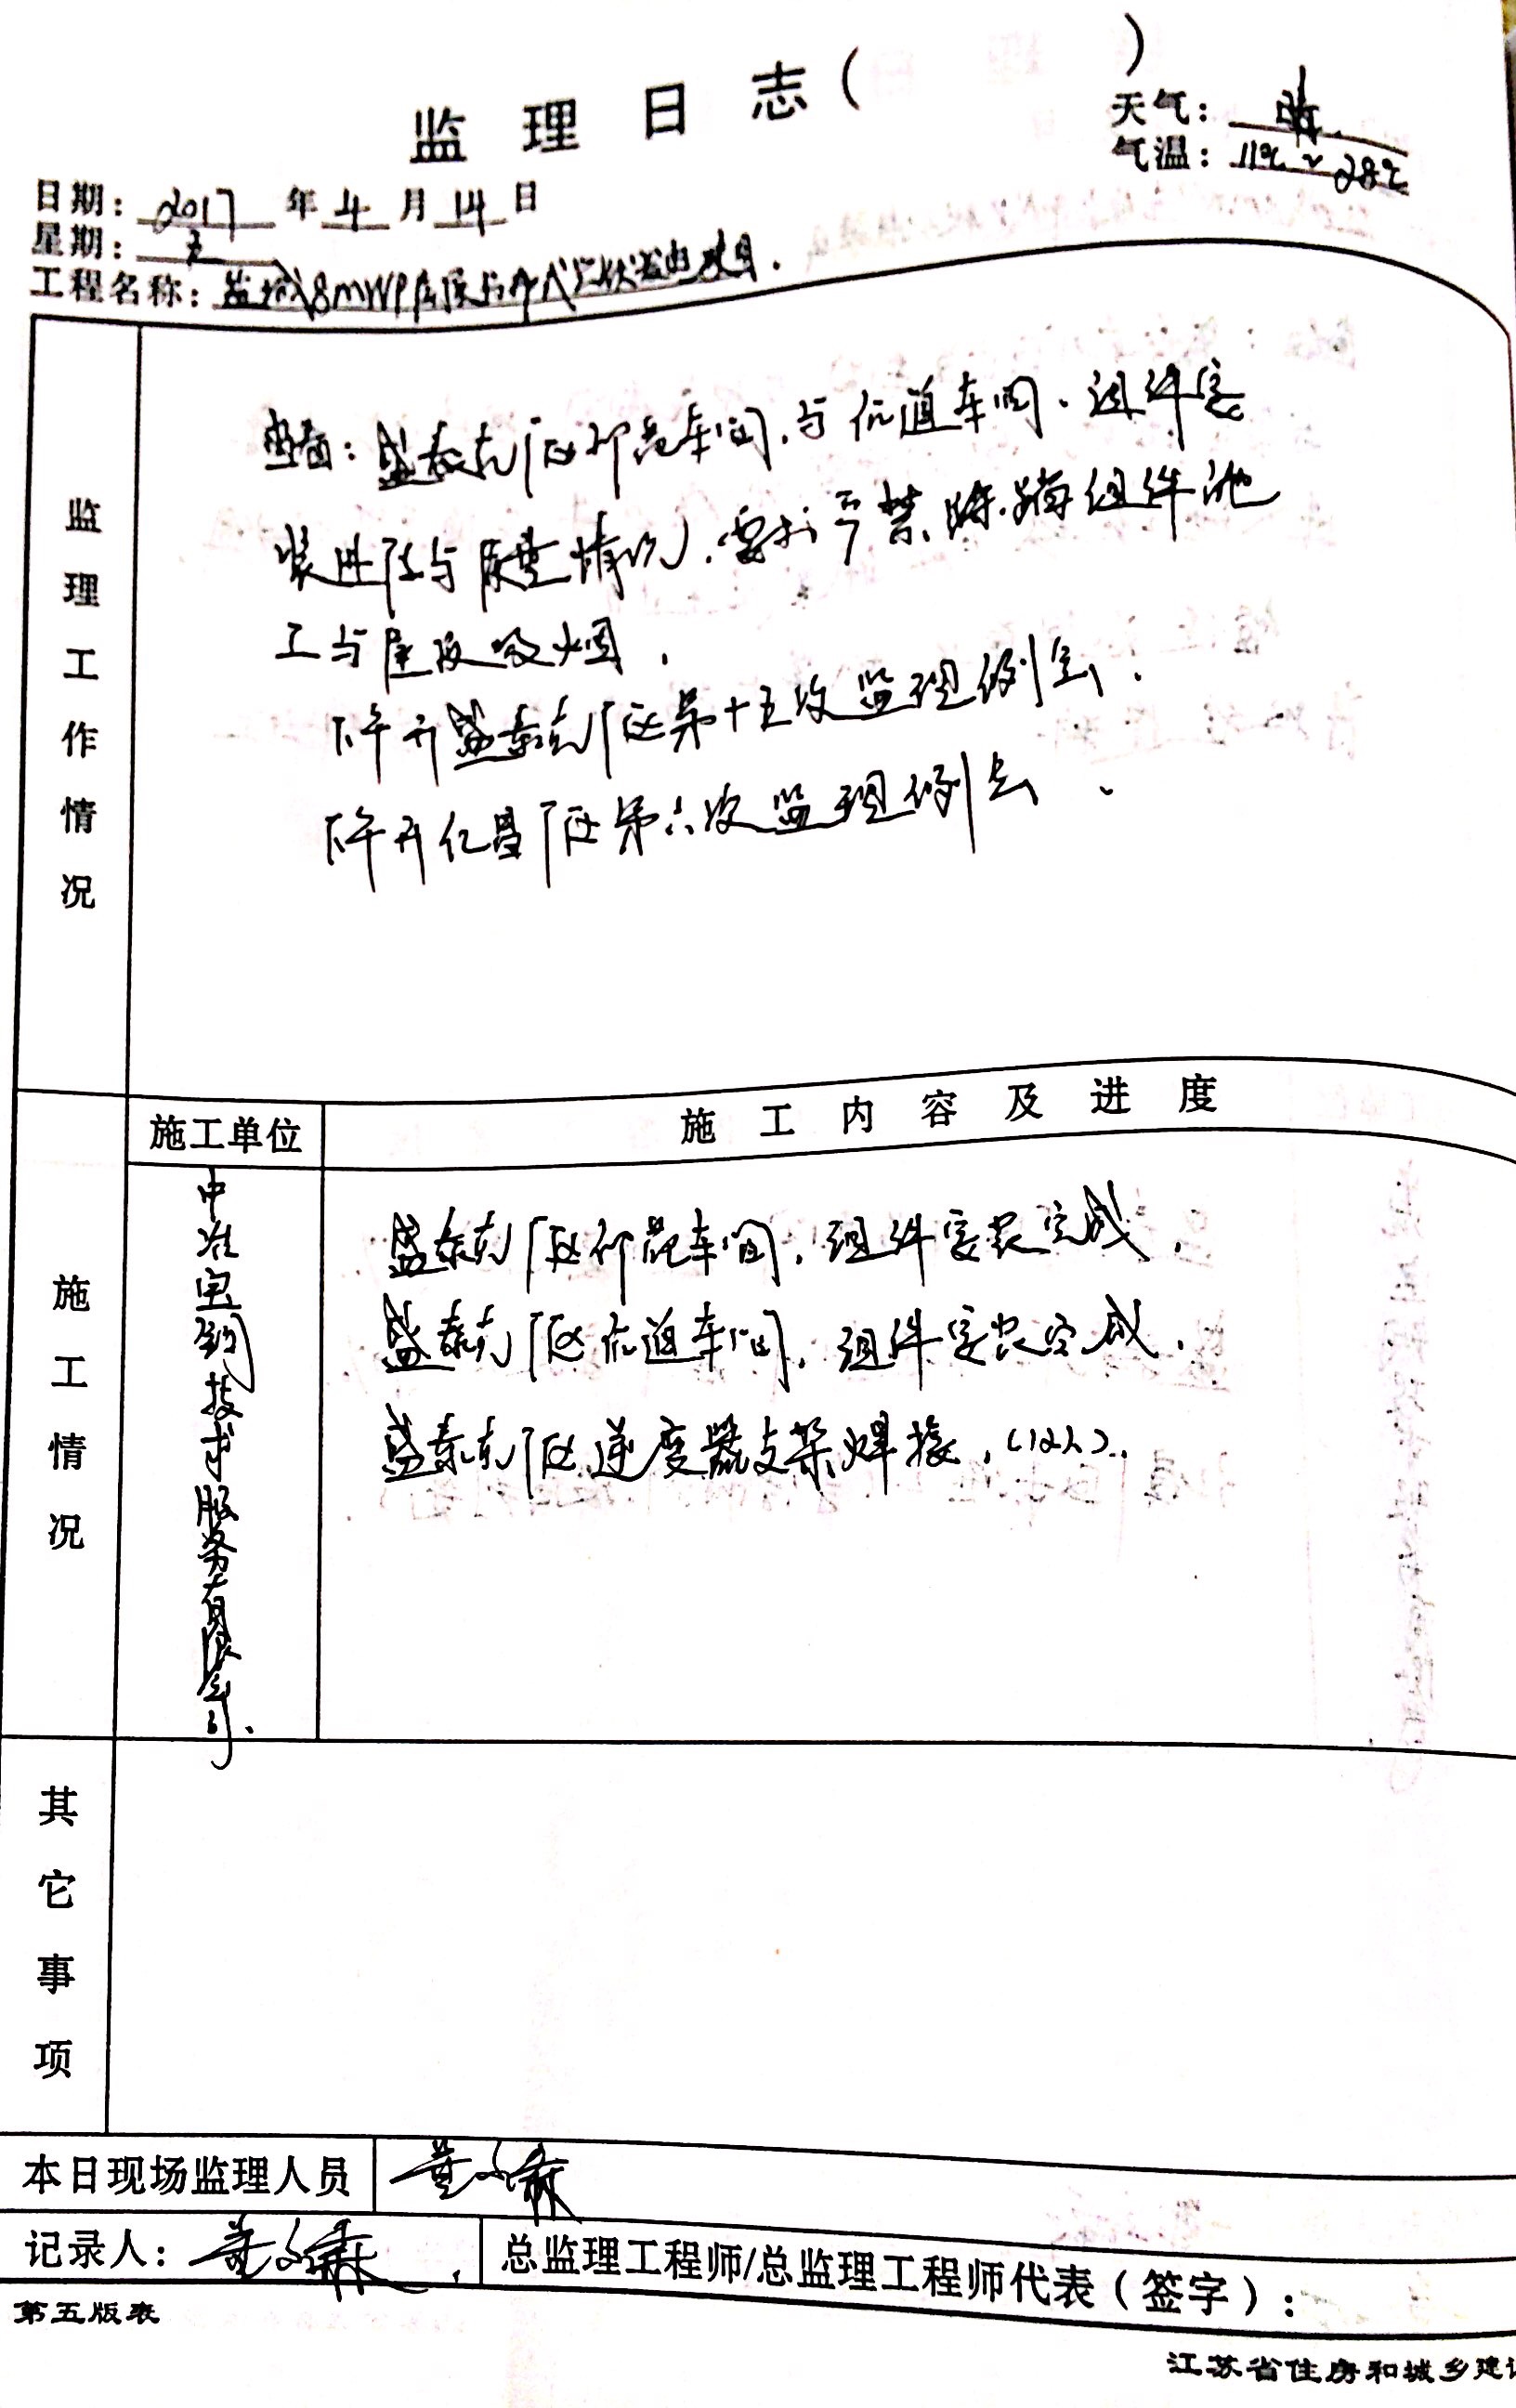 监理日志（ ）
天气：晴.
气温：11℃~28℃
日期：2017年4月14日
星期：五
工程名称：盐城8MWP屋顶分布式光伏发电项目.
监理工作情况
盛泰东厂区印花车间.与 车间.组件安
装进度与质量情况.要求严禁踩踏组件施
工与屋顶吸烟.
下午开盛泰东厂区第十五次监理例会.
下午开亿昌厂区第六次监理例会.
施工单位
施工内容及进度
施工情况
中 宝钢技术服务有限公司.
盛泰东厂区印花车间.组件安装完成.
盛泰东厂区 车间.组件安装完成.
盛泰东厂区逆变器支架焊接.(12人).
其它事项
本日现场监理人员
记录人：
总监理工程师/总监理工程师代表（签字）：
第五版表
江苏省住房和城乡建